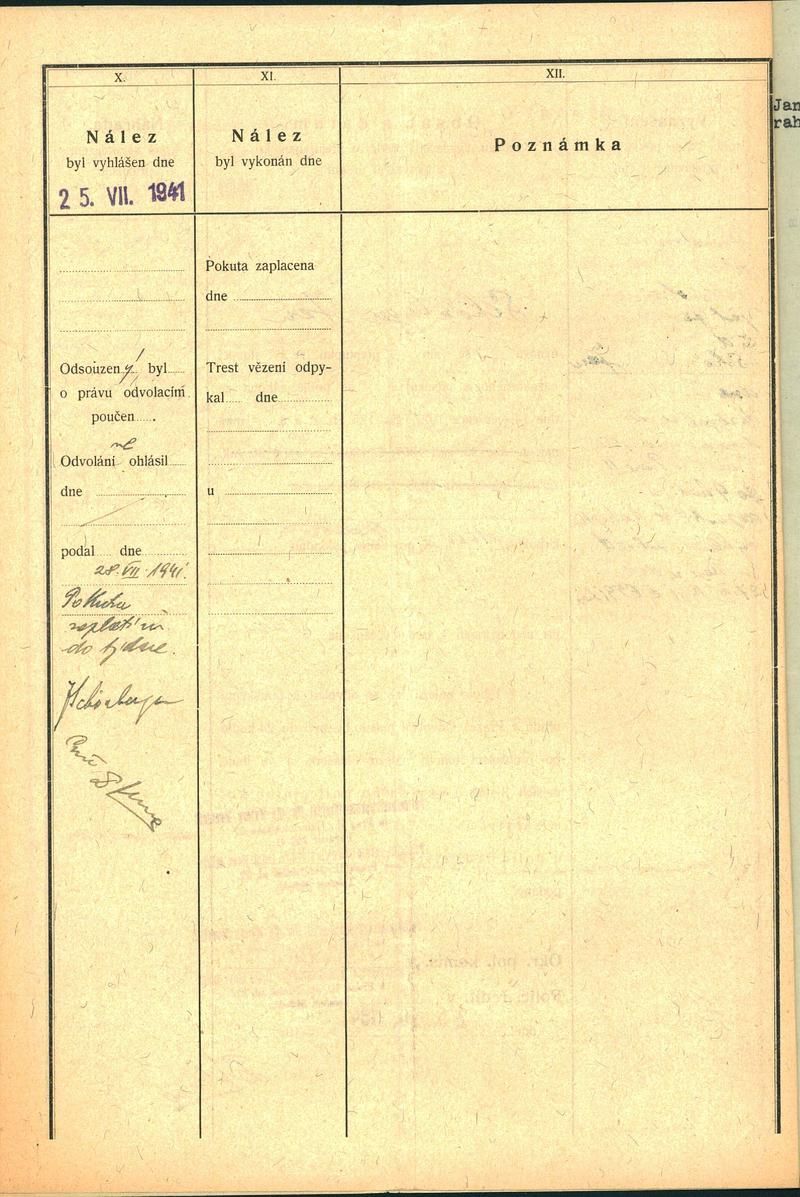 X.
Nález
byl vyhlášen dne
25. VII. 1941
Odsouzen ý byl
o právu odvolacím
poučen
ne
Odvolání ohlásil
dne
podal dne
28. VII. 1941.
Pokutu
zaplatím
do týdne.
XI.
Nález
byl vykonán dne
Pokuta zaplacena
dne
Trest vězení odpy-
kal dne
u
XII.
Poznámka
Jan
rah